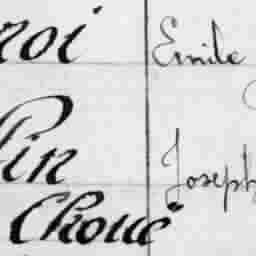 roi Emile
lin Joseph
Choué